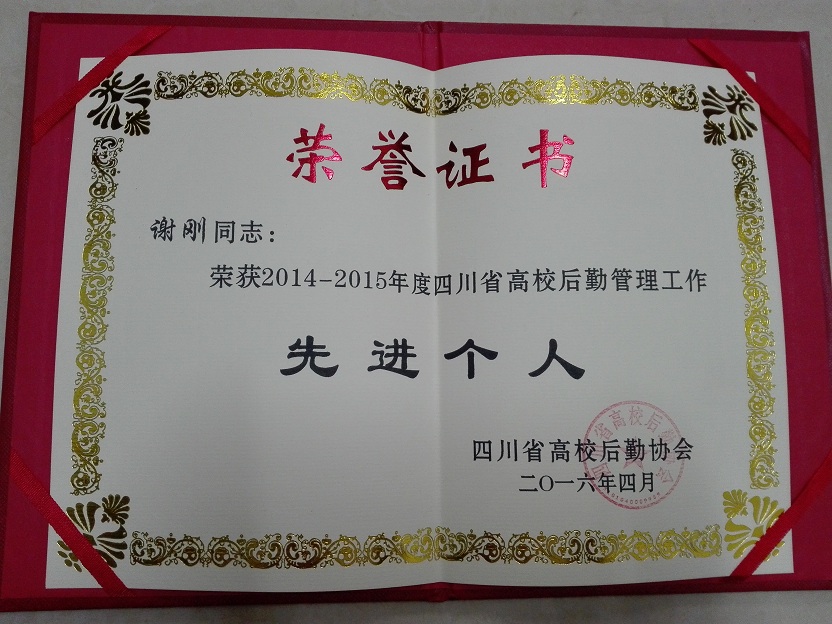 荣誉证书
谢刚同志：
荣获2014-2015年度四川省高校后勤管理工作
先进个人
四川省高校后勤协会
二〇一六年四月